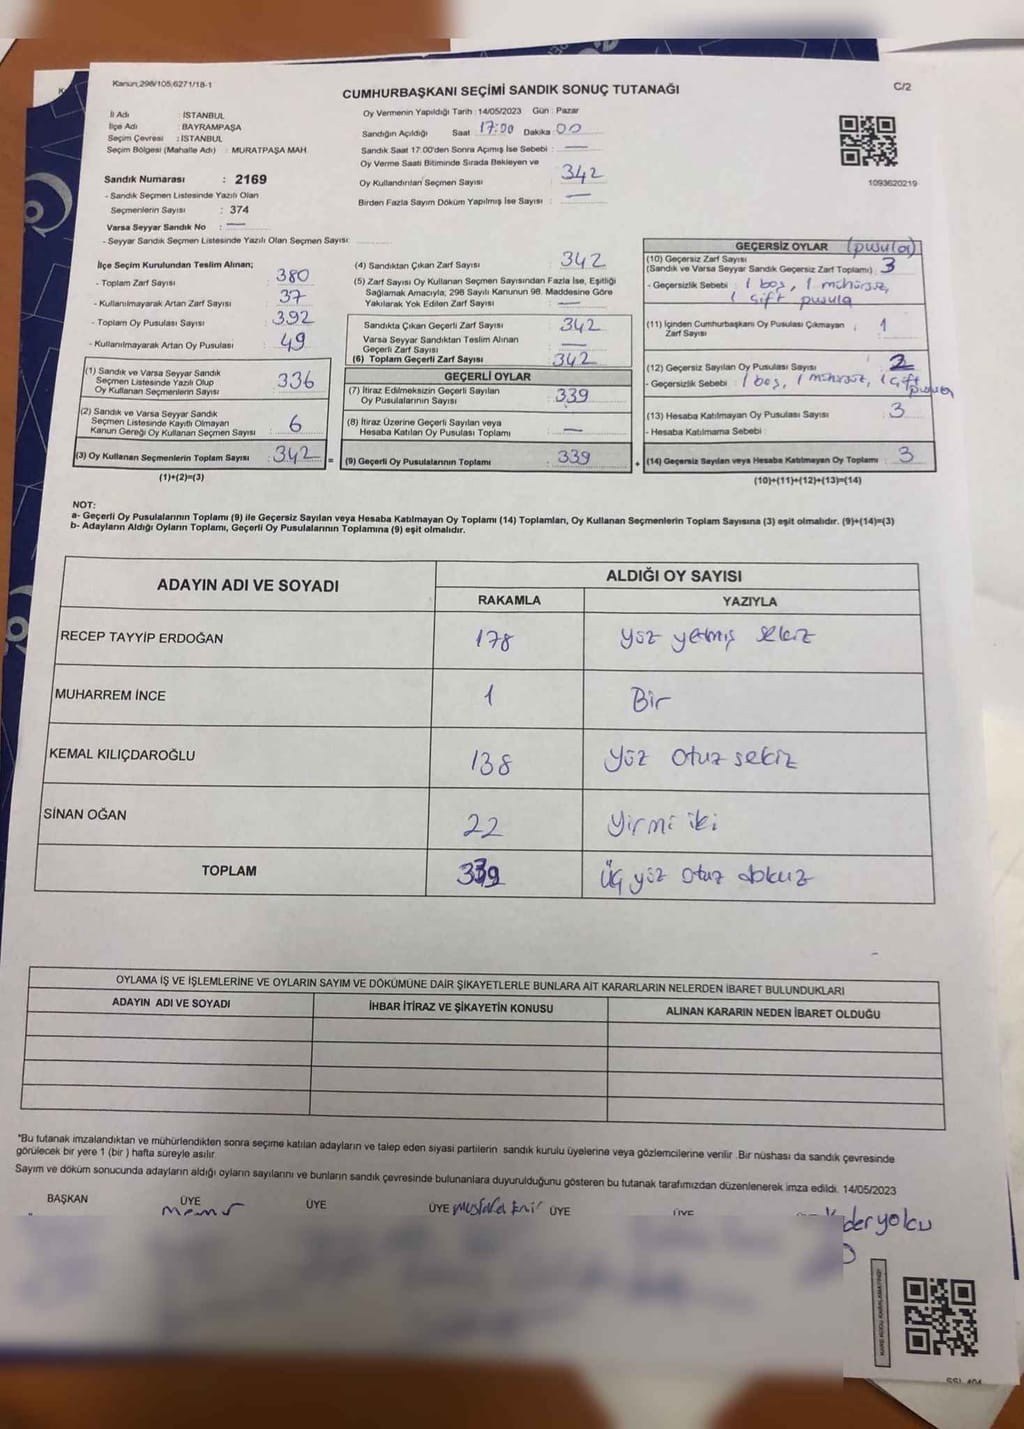 Kanun;298/105;6271/18-1
CUMHURBAŞKANI SEÇİMİ SANDIK SONUÇ TUTANAĞI
C/2
İl Adı : İSTANBUL
İlçe Adı : BAYRAMPAŞA
Seçim Çevresi : İSTANBUL
Seçim Bölgesi (Mahalle Adı) : MURATPAŞA MAH.
Oy Vermenin Yapıldığı Tarih : 14/05/2023 Gün : Pazar
Sandığın Açıldığı Saat 17:00 Dakika : 00
Sandık Saat 17.00'den Sonra Açımış İse Sebebi : —
Oy Verme Saati Bitiminde Sırada Bekleyen ve
Oy Kullandırılan Seçmen Sayısı 342
Birden Fazla Sayım Döküm Yapılmış İse Sayısı : —
1093620219
Sandık Numarası : 2169
- Sandık Seçmen Listesinde Yazılı Olan
Seçmenlerin Sayısı : 374
Varsa Seyyar Sandık No : —
- Seyyar Sandık Seçmen Listesinde Yazılı Olan Seçmen Sayısı:
İlçe Seçim Kurulundan Teslim Alınan;
- Toplam Zarf Sayısı : 380
- Kullanılmayarak Artan Zarf Sayısı : 37
- Toplam Oy Pusulası Sayısı : 392
- Kullanılmayarak Artan Oy Pusulası : 49
(1) Sandık ve Varsa Seyyar Sandık
Seçmen Listesinde Yazılı Olup
Oy Kullanan Seçmenlerin Sayısı : 336
(2) Sandık ve Varsa Seyyar Sandık
Seçmen Listesinde Kayıtlı Olmayan
Kanun Gereği Oy Kullanan Seçmen Sayısı : 6
(3) Oy Kullanan Seçmenlerin Toplam Sayısı : 342 =
(1)+(2)=(3)
(4) Sandıktan Çıkan Zarf Sayısı : 342
(5) Zarf Sayısı Oy Kullanan Seçmen Sayısından Fazla İse, Eşitliği
Sağlamak Amacıyla; 298 Sayılı Kanunun 98. Maddesine Göre
Yakılarak Yok Edilen Zarf Sayısı : —
Sandıkta Çıkan Geçerli Zarf Sayısı : 342
Varsa Seyyar Sandıktan Teslim Alınan
Geçerli Zarf Sayısı : —
(6) Toplam Geçerli Zarf Sayısı : 342
GEÇERLİ OYLAR
(7) İtiraz Edilmeksizin Geçerli Sayılan
Oy Pusulalarının Sayısı : 339
(8) İtiraz Üzerine Geçerli Sayılan veya
Hesaba Katılan Oy Pusulası Toplamı : —
(9) Geçerli Oy Pusulalarının Toplamı : 339 +
GEÇERSİZ OYLAR (pusula)
(10) Geçersiz Zarf Sayısı
(Sandık ve Varsa Seyyar Sandık Geçersiz Zarf Toplamı) : 3
- Geçersizlik Sebebi : 1 boş, 1 mühürsüz,
1 çift pusula
(11) İçinden Cumhurbaşkanı Oy Pusulası Çıkmayan : 1
Zarf Sayısı
(12) Geçersiz Sayılan Oy Pusulası Sayısı : 2
- Geçersizlik Sebebi : 1 boş, 1 mühürsüz, 1 çift
pusula
(13) Hesaba Katılmayan Oy Pusulası Sayısı : 3
- Hesaba Katılmama Sebebi :
(14) Geçersiz Sayılan veya Hesaba Katılmayan Oy Toplamı : 3
(10)+(11)+(12)+(13)=(14)
NOT:
a- Geçerli Oy Pusulalarının Toplamı (9) ile Geçersiz Sayılan veya Hesaba Katılmayan Oy Toplamı (14) Toplamları, Oy Kullanan Seçmenlerin Toplam Sayısına (3) eşit olmalıdır. (9)+(14)=(3)
b- Adayların Aldığı Oyların Toplamı, Geçerli Oy Pusulalarının Toplamına (9) eşit olmalıdır.
ADAYIN ADI VE SOYADI
ALDIĞI OY SAYISI
RAKAMLA YAZIYLA
RECEP TAYYİP ERDOĞAN 178 yüz yetmiş sekiz
MUHARREM İNCE 1 Bir
KEMAL KILIÇDAROĞLU 138 yüz otuz sekiz
SİNAN OĞAN 22 yirmi iki
TOPLAM 339 üç yüz otuz dokuz
OYLAMA İŞ VE İŞLEMLERİNE VE OYLARIN SAYIM VE DÖKÜMÜNE DAİR ŞİKAYETLERLE BUNLARA AİT KARARLARIN NELERDEN İBARET BULUNDUKLARI
ADAYIN ADI VE SOYADI İHBAR İTİRAZ VE ŞİKAYETİN KONUSU ALINAN KARARIN NEDEN İBARET OLDUĞU
*Bu tutanak imzalandıktan ve mühürlendikten sonra seçime katılan adayların ve talep eden siyasi partilerin sandık kurulu üyelerine veya gözlemcilerine verilir .Bir nüshası da sandık çevresinde
görülecek bir yere 1 (bir ) hafta süreyle asılır.
Sayım ve döküm sonucunda adayların aldığı oyların sayılarını ve bunların sandık çevresinde bulunanlara duyurulduğunu gösteren bu tutanak tarafımızdan düzenlenerek imza edildi. 14/05/2023
BAŞKAN ÜYE ÜYE ÜYE ÜYE ÜYE
yolcu